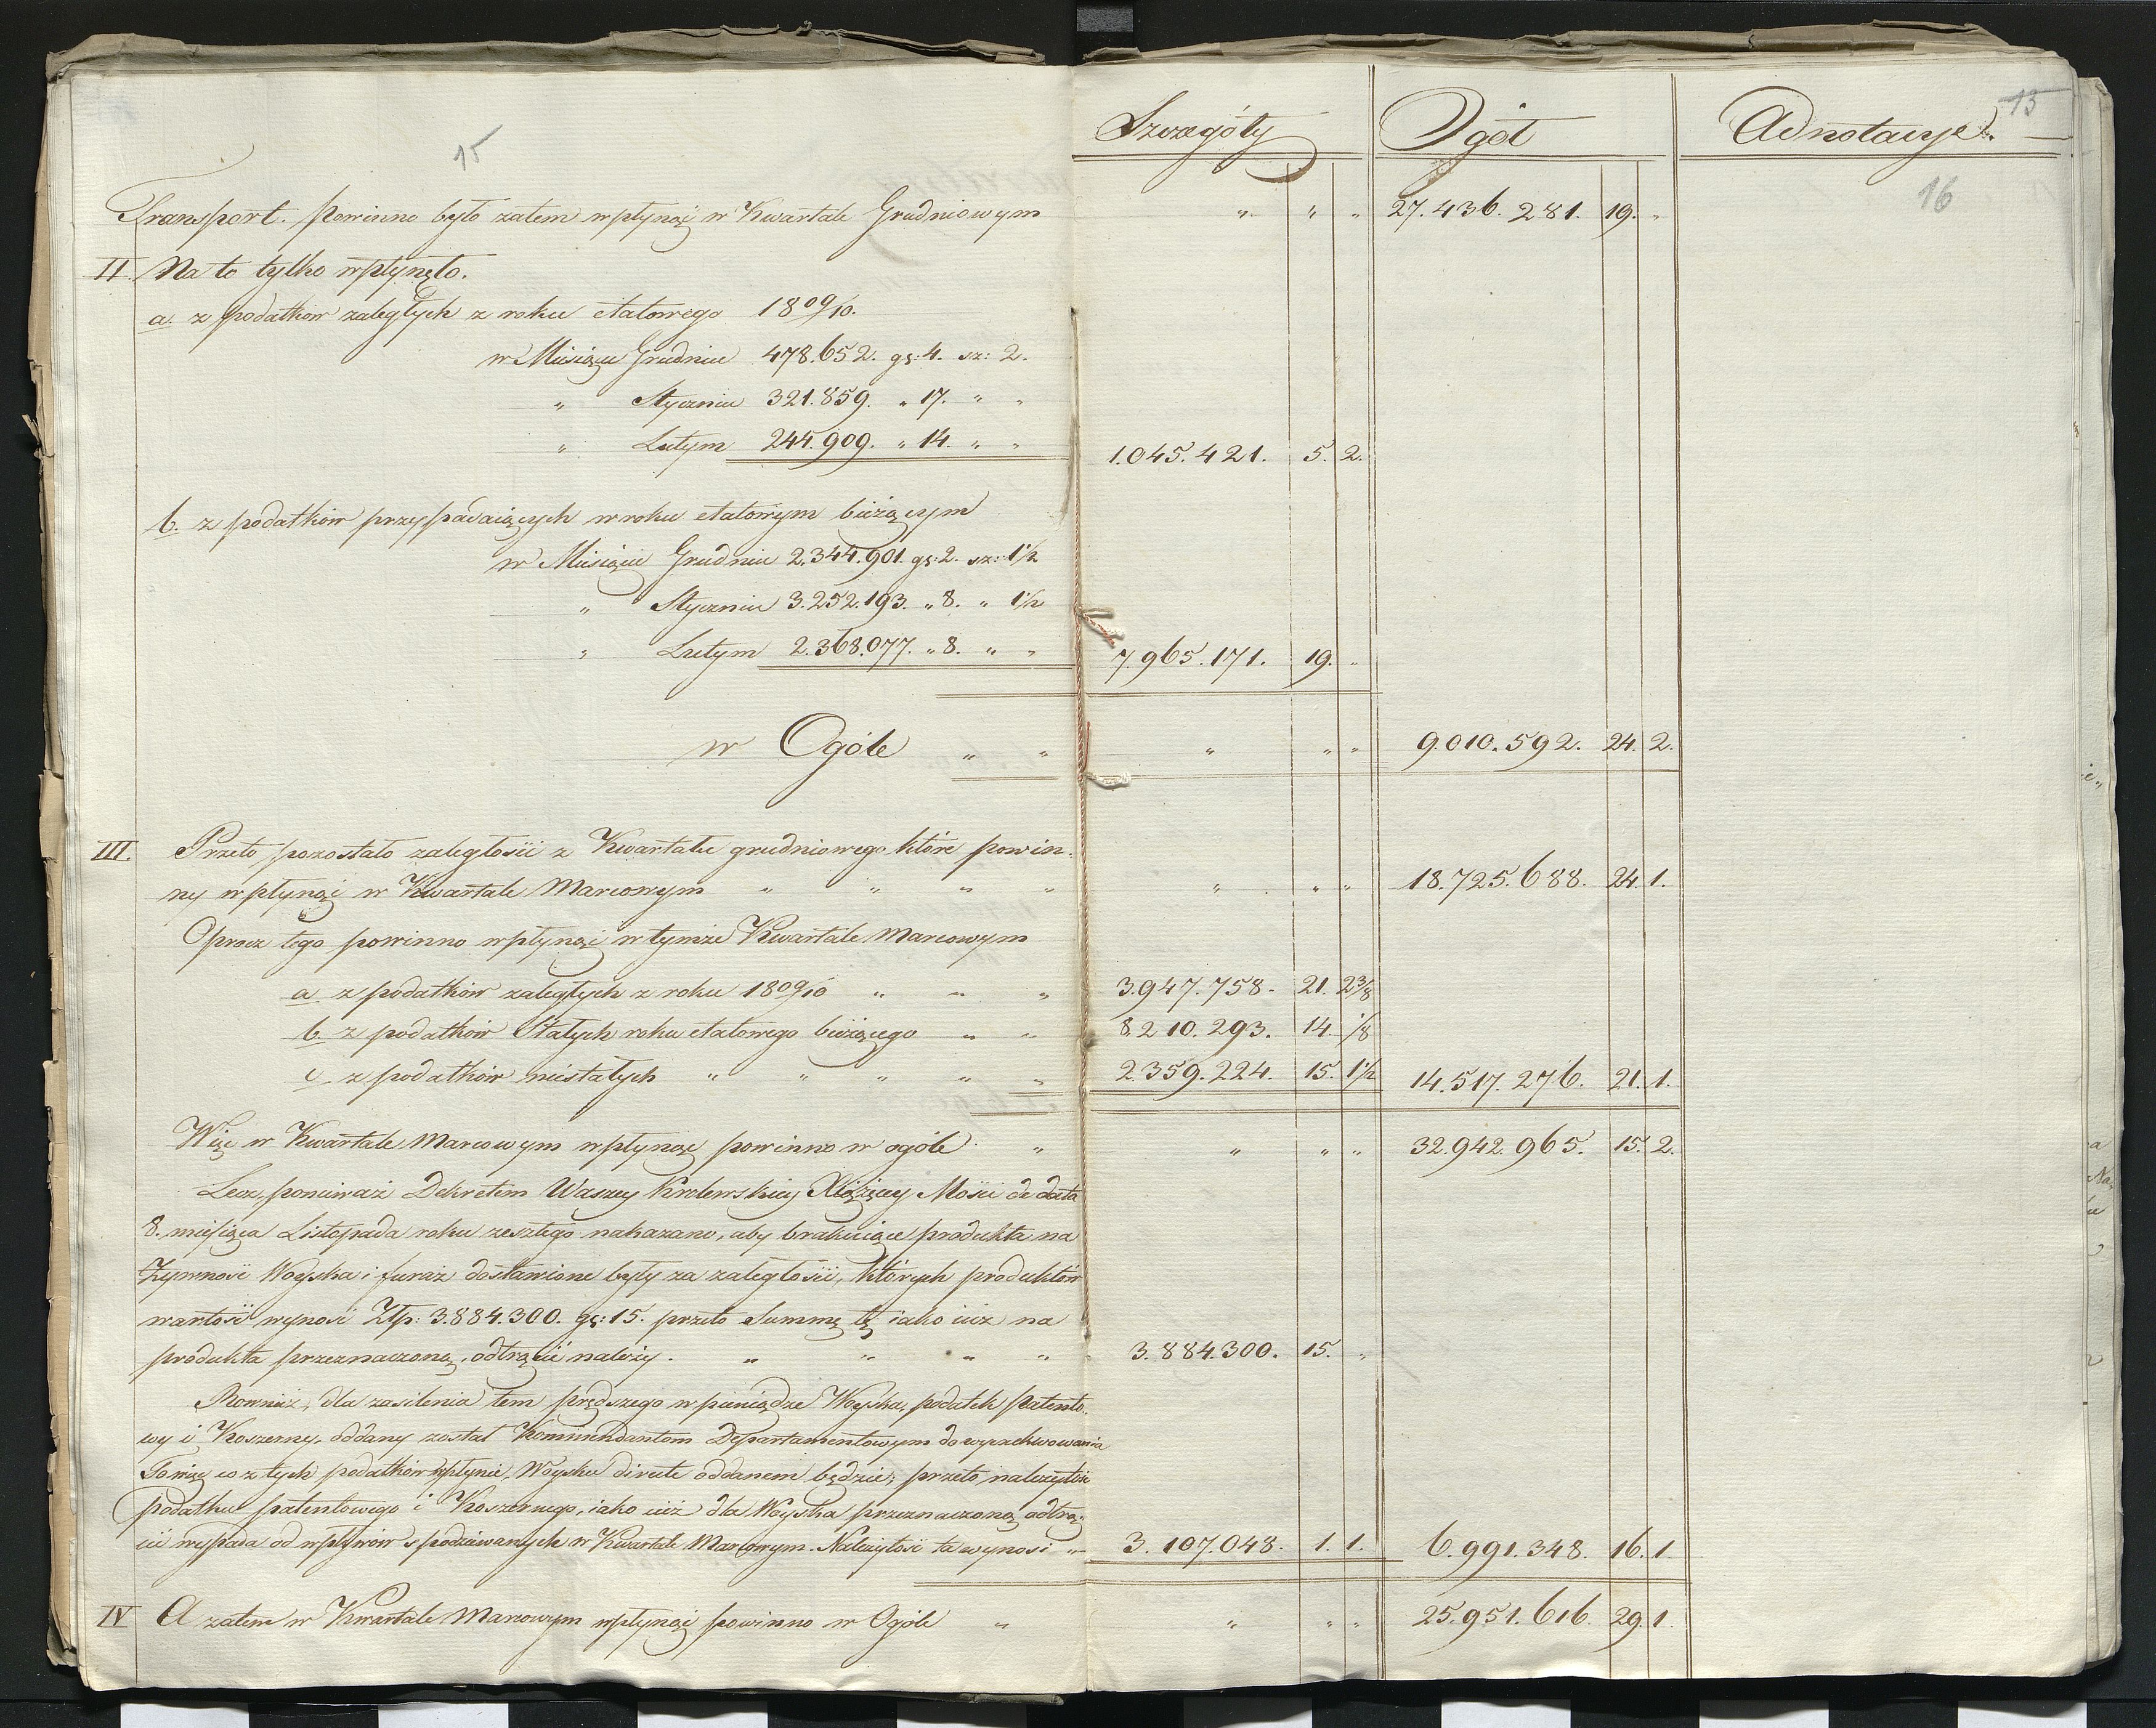 Szczegóły Ogół Adnotacye. 15
15 16
Transport. Powinno było zatem wpłynąć w Kwartale Grudniowym " " " 27.436.281. 19. "
II. Na to tylko wpłynęło.
a. z podatków zaległych z roku etatowego 1809/10.
w Miesiącu Grudniu 478.652. gr: 4. sz: 2.
" Styczniu 321.859. " 17. " "
" Lutym 244.909. " 14. " " 1.045.421. 5. 2.
b. z podatków przypadaiących w roku etatowym bieżącym
w Miesiącu Grudniu 2.344.901. gr: 2. sz: 1½
" Styczniu 3.252.193. " 8. " 1½
" Lutym 2.368.077. " 8. " " 7.965.171. 19. "
w Ogóle " " " " " 9.010.592. 24. 2.
III. Przeto pozostało zaległości z Kwartału grudniowego które powin-
ny wpłynąć w Kwartale Marcowym " " " " " " " 18.725.688. 24. 1.
Oprocz tego powinno wpłynąć w tymże Kwartale Marcowym
a z podatków zaległych z roku 1809/10 " " " 3.947.758. 21. 2⅜
b. z podatków Stałych roku etatowego bieżącego " " 8.210.293. 14. ⅛
c. z podatków niestałych " " " " " 2.359.224. 15. 1½ 14.517.276. 21. 1.
Więc w Kwartale Marcowym wpłynąć powinno w ogóle " " " " 32.942.965. 15. 2.
Lecz, ponieważ Dekretem Waszey Krolewskiey Xiążęcey Mości de dato
8. miesiąca Listopada roku zeszłego nakazano, aby brakuiące produkta na
Żywność Woyska i furaż dostawione były za zaległości, których produktów
wartość wynosi Złp: 3.884.300. gr: 15. przeto Summę tę iako iuż na
produkta przeznaczoną, odtrącić należy. " " " " 3.884.300. 15. "
Rownież, dla zasilenia tem prędszego w pieniądze Woyska, podatek Patento-
wy i Koszerny, oddany został Kommendantom Departamentowym do wyrachowania
To więc co z tych podatków wpłynie, Woysku directe oddanem będzie; przeto, należytość
podatku patentowego i Koszernego, iako iuż dla Woyska przeznaczoną odtrą-
cić wypada od wpływów spodziewanych w Kwartale Marcowym. Należytość ta wynosi " 3.107.048. 1. 1. 6.991.348. 16. 1.
IV A zatem w Kwartale Marcowym wpłynąć powinno w Ogóle " " " " 25.951.616. 29. 1.